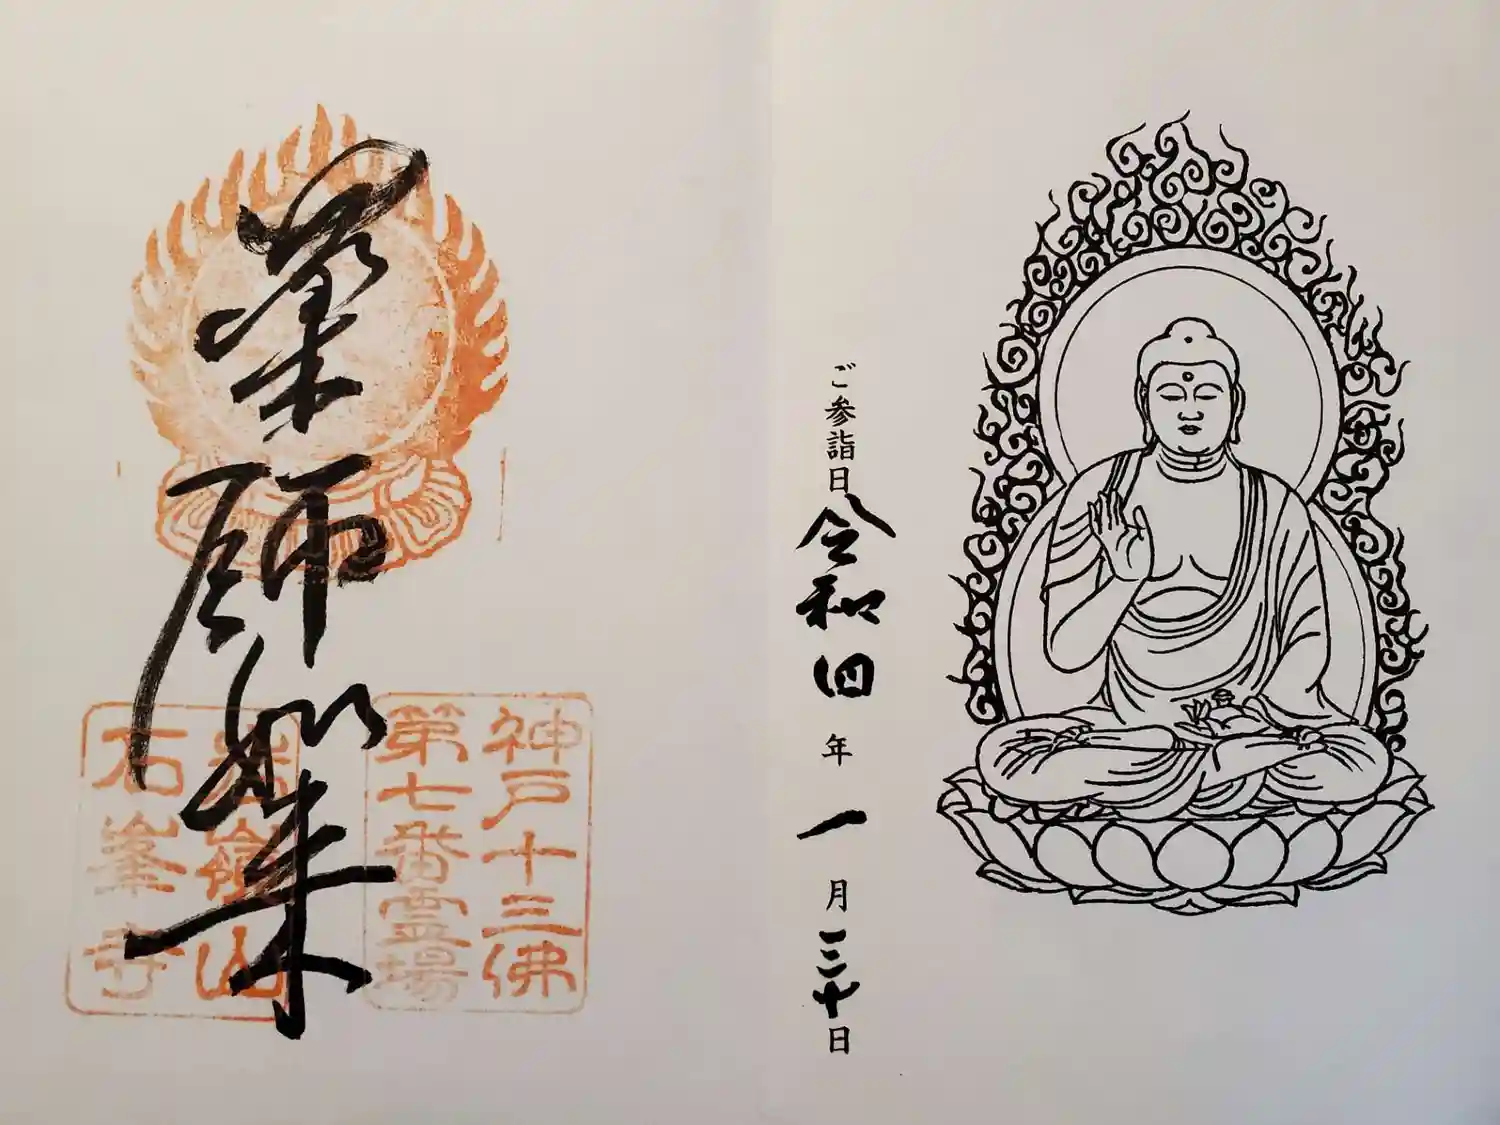 ご参詣日令和四年一月三十日
神戸十三佛
第七番霊場
薬師如来
岩嶺山
石峯寺